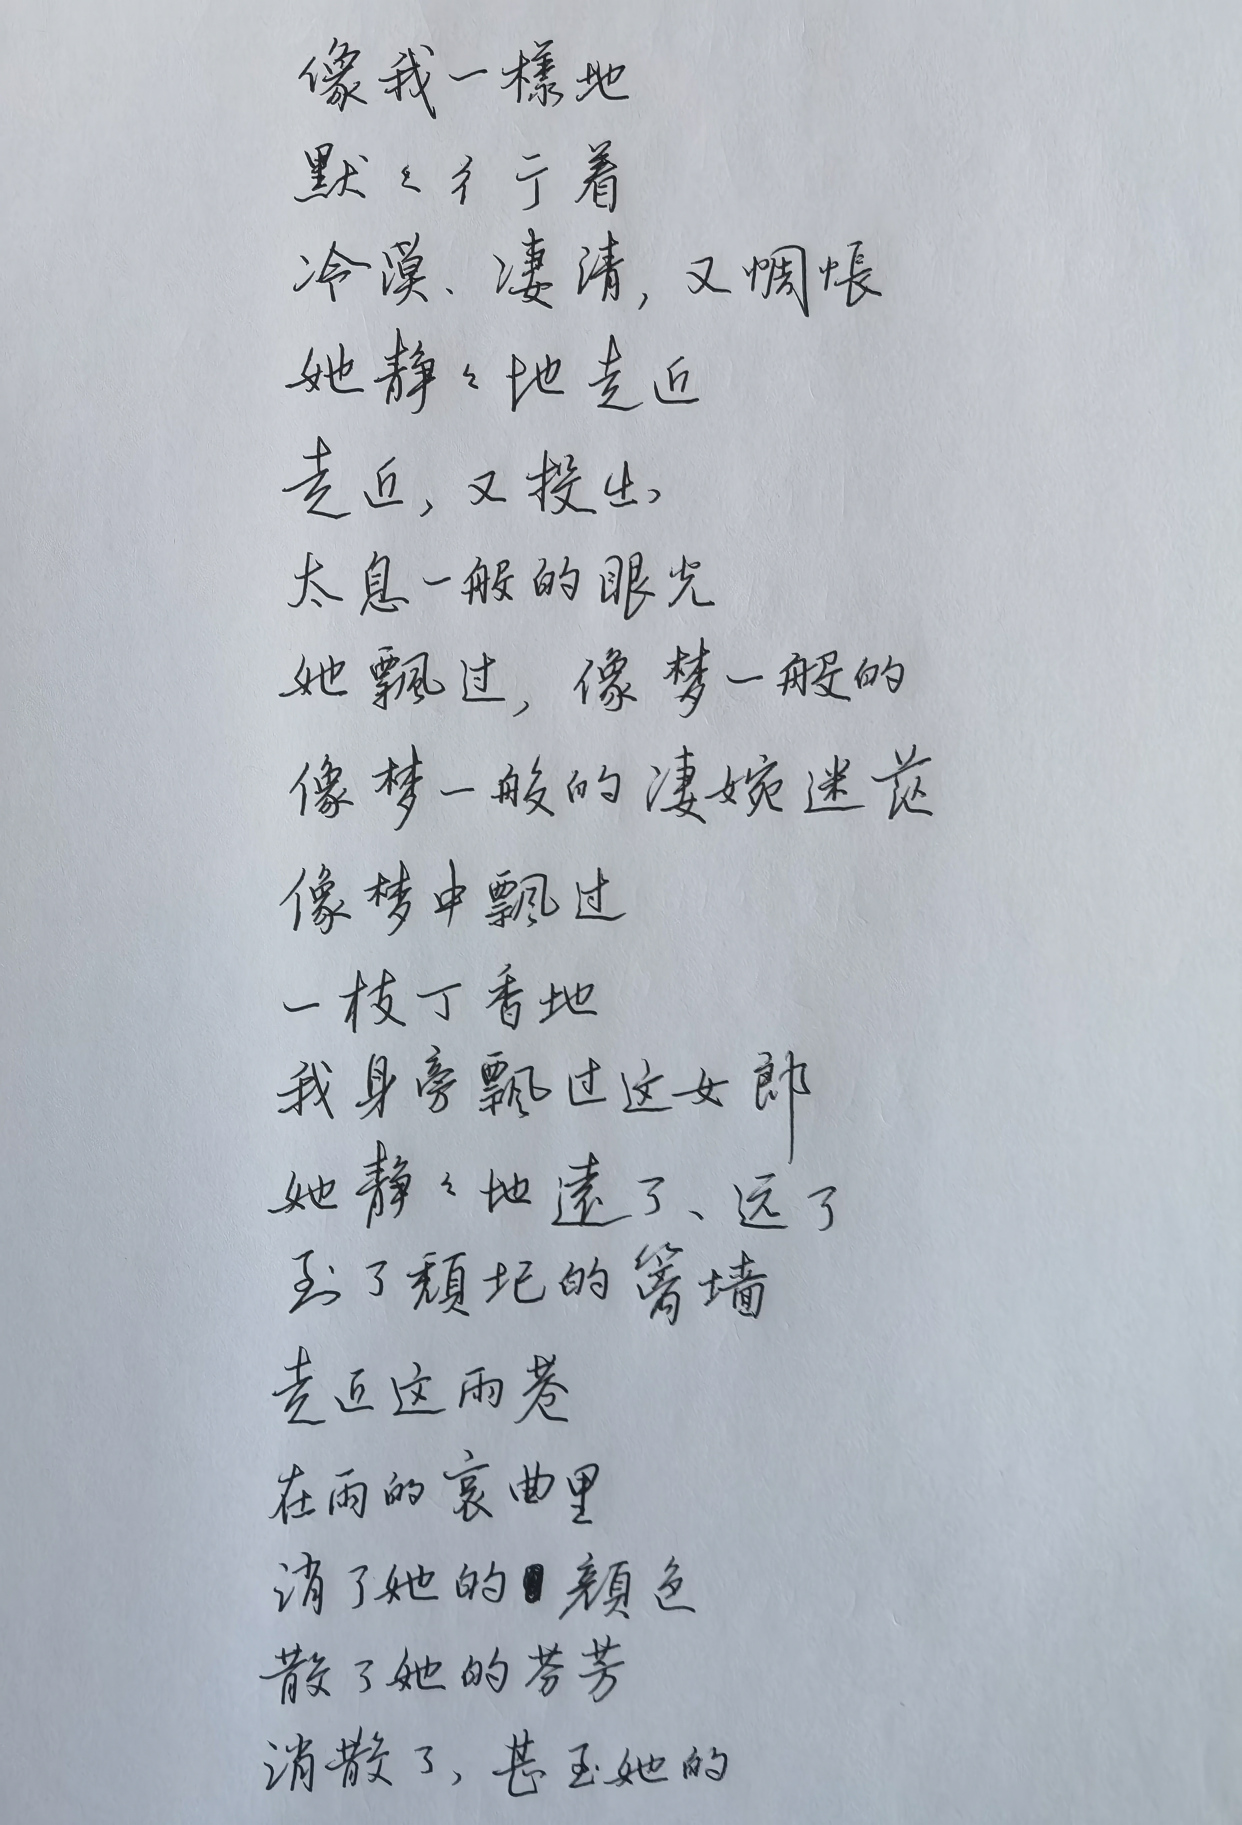 像我一樣地
默々彳亍着
冷漠、凄清，又惆悵
她静々地走近
走近，又投出
太息一般的眼光
她飄过，像梦一般的
像梦一般的凄婉迷茫
像梦中飄过
一枝丁香地
我身旁飄过这女郎
她静々地遠了、远了
到了頽圮的篱墙
走近这雨巷
在雨的哀曲里
消了她的顔色
散了她的芬芳
消散了，甚至她的